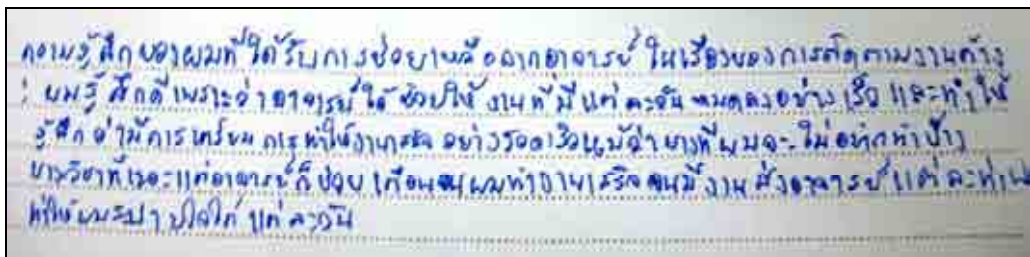 ความรู้สึกของผมที่ได้รับการช่วยเหลือจากอาจารย์ ในเรื่องของการติดตามงานค้าง
ผมรู้สึกดีเพราะว่าอาจารย์ได้ช่วยให้งานที่มีแต่ละวันหมดลงอย่างเร็ว และทำให้
รู้สึกว่ามีการเตรียมการทำให้งานเสร็จอย่างรวดเร็วแม้ว่าบางทีผมจะไม่อยากทำบ้าง
บางวิชาที่เยอะแต่อาจารย์ก็ช่วยเตือนจนผมทำงานเสร็จจนมีงานส่งอาจารย์แต่ละท่าน
ทำให้ผมสบายใจได้แต่ละวัน